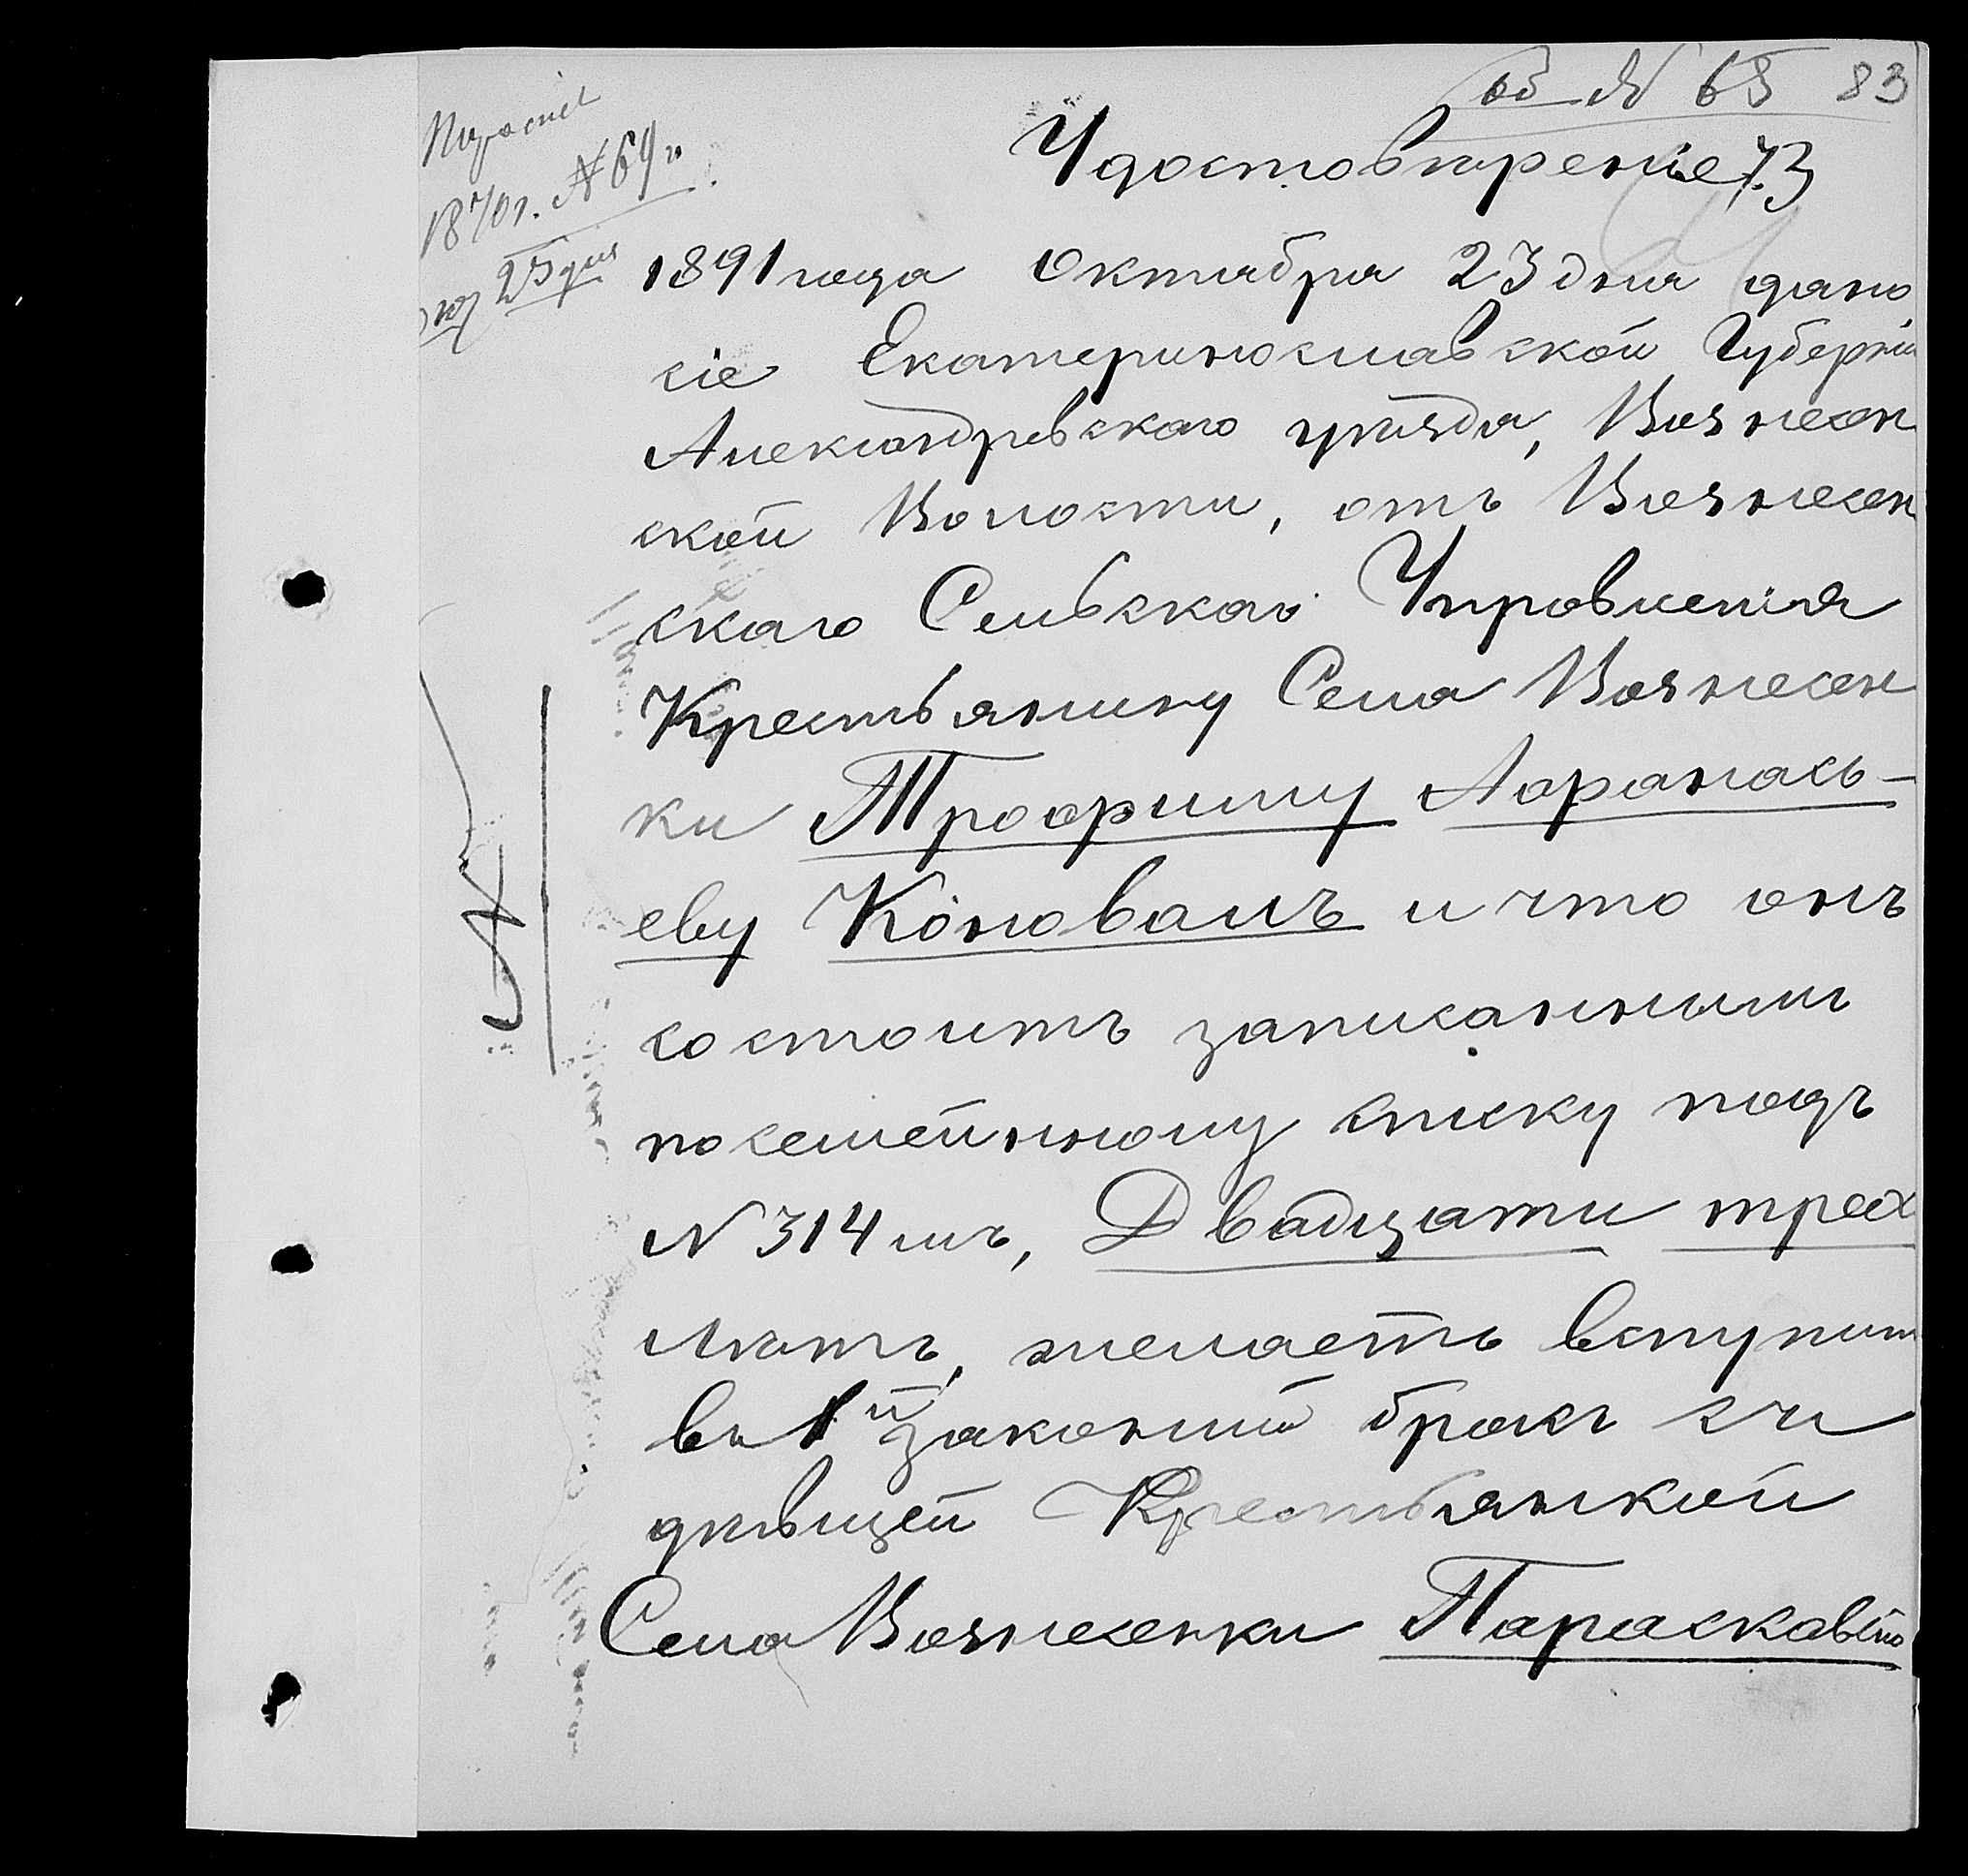 № 65 83
Удостовѣреніе 73
1870 г. № 69
25 дня
1891 года Октября 23 дня дано
сіе Екатеринославской Губерніи
Александревскаго уѣзда, Вознесен
ской Волости, отъ Вознесен
скаго Сельскаго Управленія
Крестьянину Села Вознесен
ки Трофиму Афанась-
еву Коновалъ и что онъ
состоитъ записаннымъ
посемейнному списку подъ
N 314 мъ, Двадцати трех
лѣтъ, желаетъ вступит
въ 1й законий бракъ съ
дѣвицей Крестьянкой
Села Вознесенки Параскавію